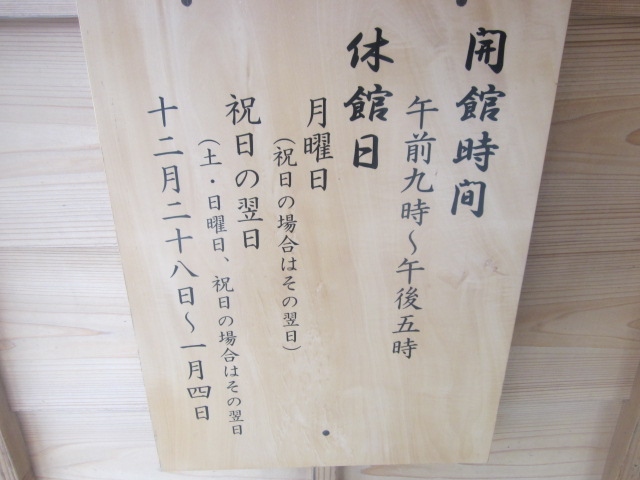 開館時間
午前九時〜午後五時
休館日
月曜日
(祝日の場合はその翌日)
祝日の翌日
(土・日曜日、祝日の場合はその翌日
十二月二十八日〜一月四日